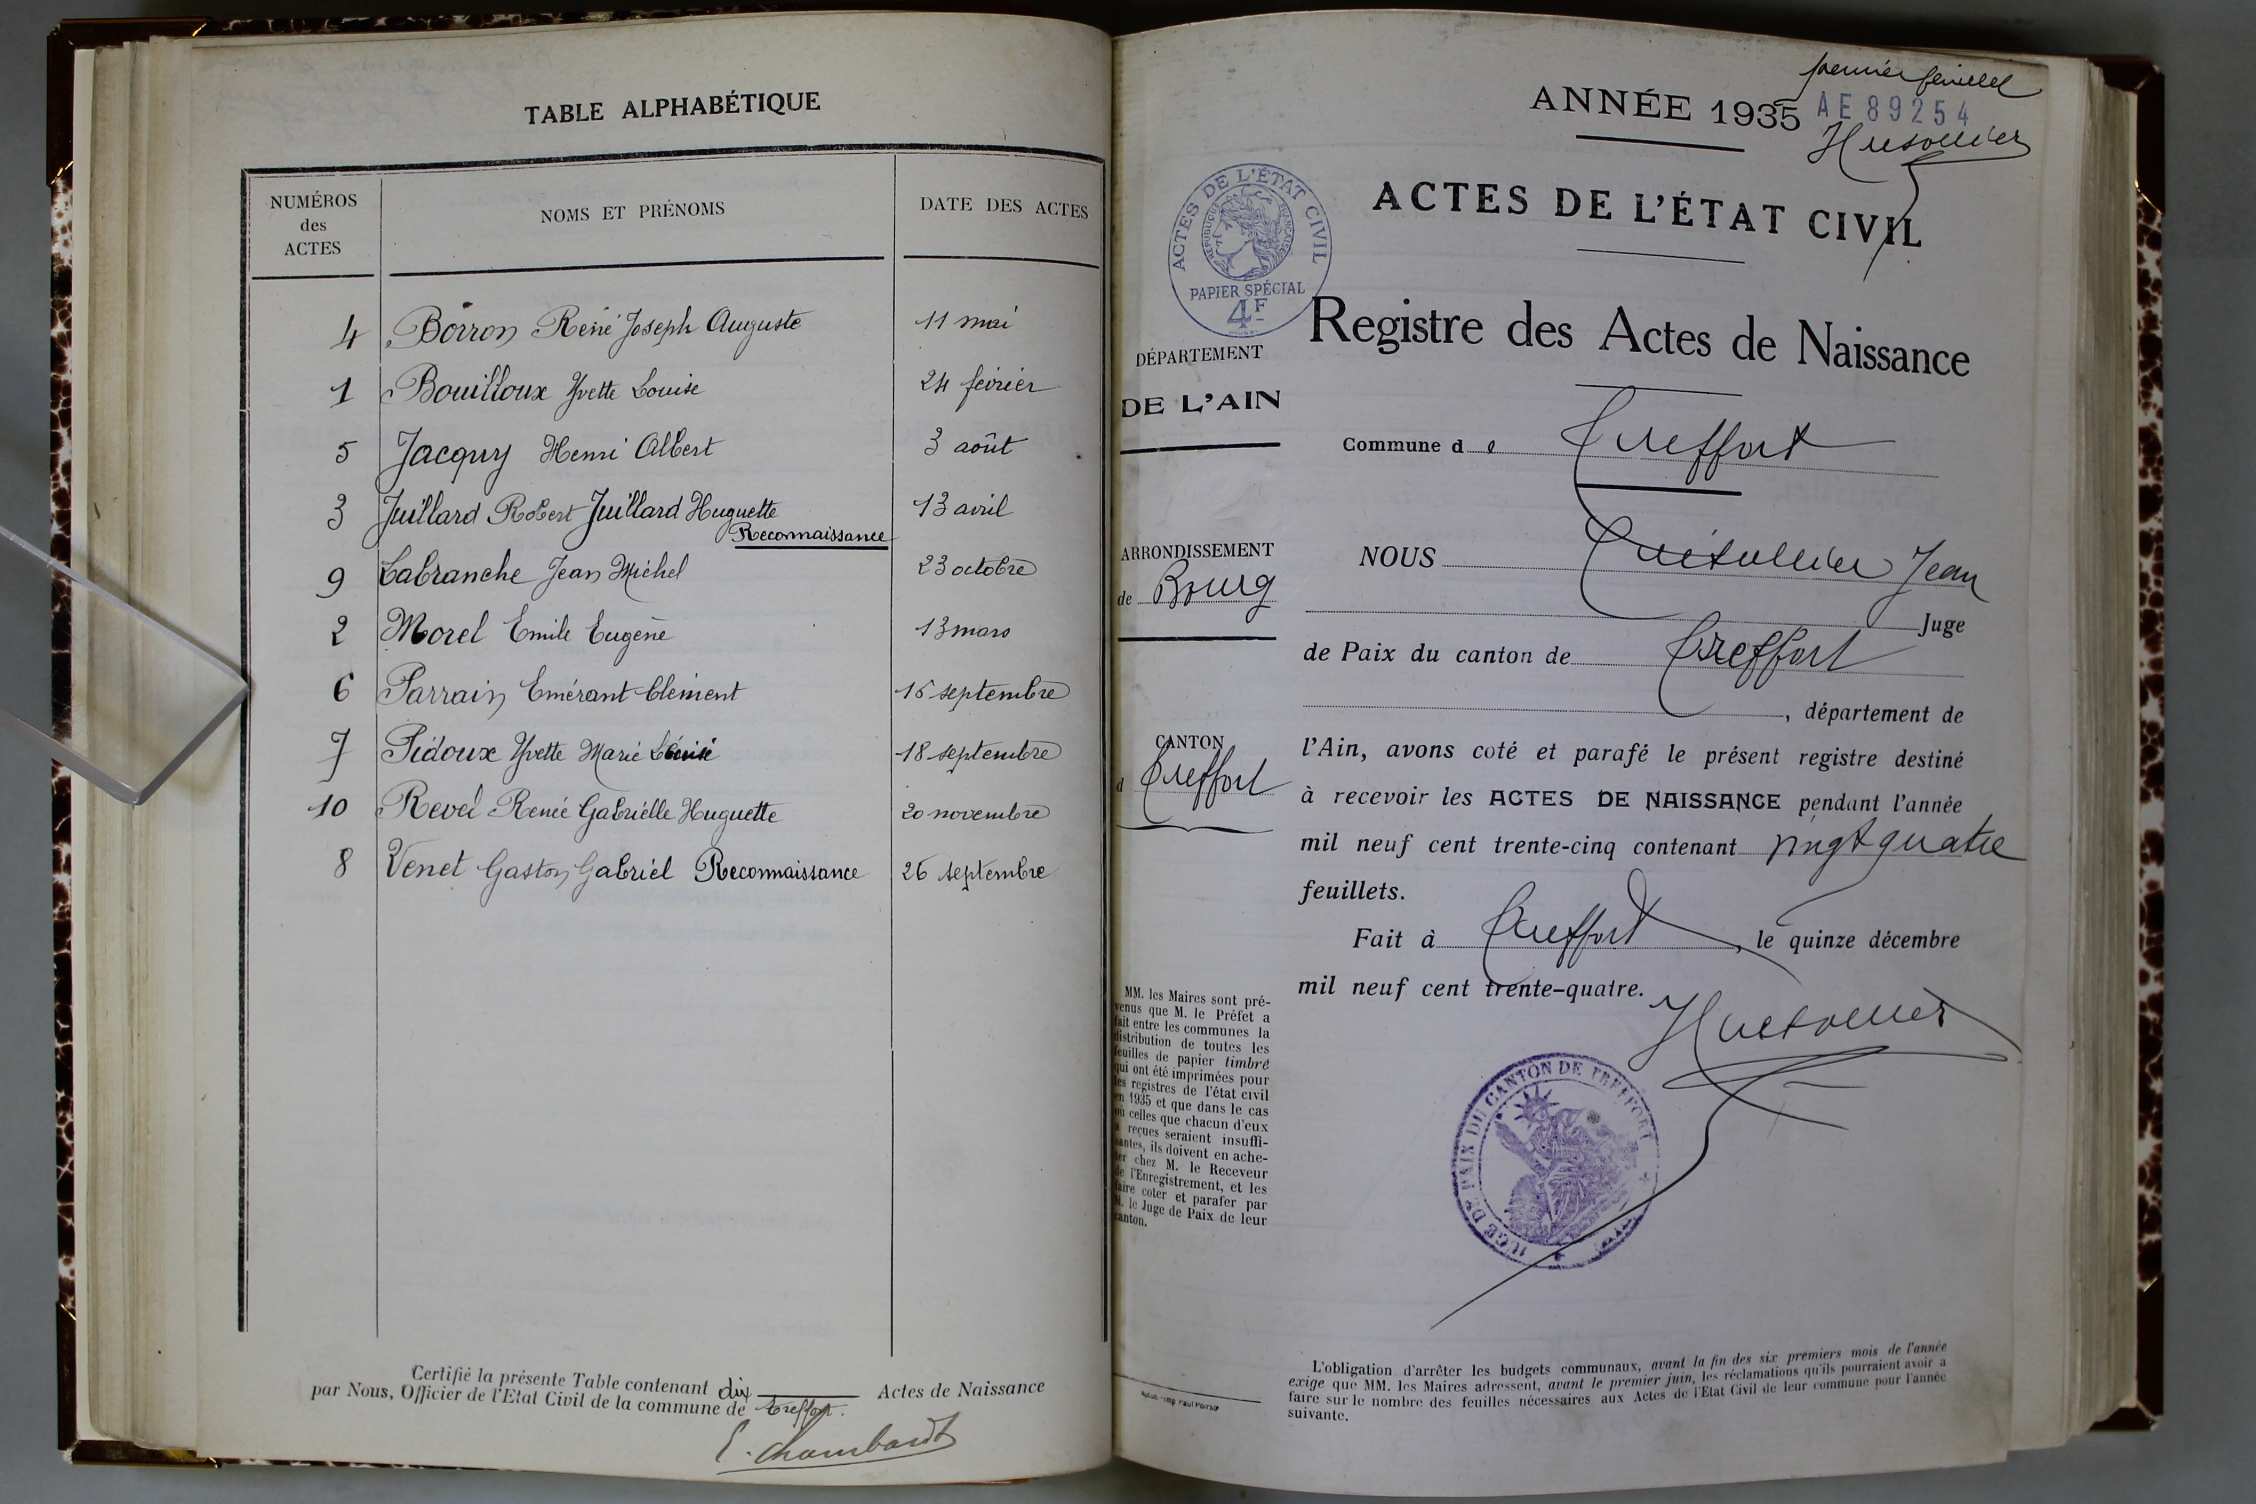 TABLE ALPHABÉTIQUE
NUMÉROS des ACTES
NOMS ET PRÉNOMS
DATE DES ACTES
4 Borron René Joseph Auguste 11 mai
1 Bouilloux Yvette Louise 24 février
5 Jacquy Henri Albert 3 août
3 Juillard Robert Juillard Huguette 13 avril
Reconnaissance
9 Labranche Jean Michel 23 octobre
2 Morel Emile Eugène 13 mars
6 Parrain Emérant Clément 15 septembre
7 Pidoux Yvette Marie Louise 18 septembre
10 Revel Renée Gabrielle Huguette 20 novembre
8 Venet Gaston Gabriel Reconnaissance 26 septembre
Certifié la présente Table contenant dix Actes de Naissance
par Nous, Officier de l'Etat Civil de la commune de Treffort.
E. Chambard
premier feuillet
ANNÉE 1935
AE 89254
ACTES DE L'ÉTAT CIVIL
ACTES DE L'ÉTAT CIVIL
RÉPUBLIQUE FRANÇAISE
PAPIER SPÉCIAL
4F
Registre des Actes de Naissance
DÉPARTEMENT
DE L'AIN
Commune de Treffort
ARRONDISSEMENT
de Bourg
CANTON
d Treffort
NOUS Jean
Juge
de Paix du canton de Treffort
, département de
l'Ain, avons coté et parafé le présent registre destiné
à recevoir les ACTES DE NAISSANCE pendant l'année
mil neuf cent trente-cinq contenant vingt quatre
feuillets.
Fait à Treffort, le quinze décembre
mil neuf cent trente-quatre.
JUGE DE PAIX DU CANTON DE TREFFORT
MM. les Maires sont pré-
venus que M. le Préfet a
fait entre les communes la
distribution de toutes les
feuilles de papier timbré
qui ont été imprimées pour
les registres de l'état civil
en 1935 et que dans le cas
où celles que chacun d'eux
a reçues seraient insuffi-
santes, ils doivent en ache-
ter chez M. le Receveur
de l'Enregistrement, et les
faire coter et parafer par
M. le Juge de Paix de leur
canton.
L'obligation d'arrêter les budgets communaux, avant la fin des six premiers mois de l'année
exige que MM. les Maires adressent, avant le premier juin, les réclamations qu'ils pourraient avoir a
faire sur le nombre des feuilles nécessaires aux Actes de l'Etat Civil de leur commune pour l'année
suivante.